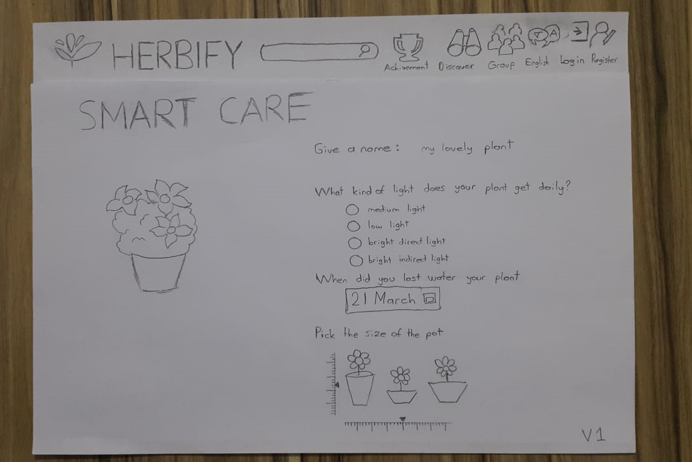 HERBIFY
Achievement Discover Group English Log in Register
SMART CARE
Give a name: my lovely plant
What kind of light does your plant get daily?
medium light
low light
bright direct light
bright indirect light
When did you last water your plant
21 March
Pick the size of the pot
V1